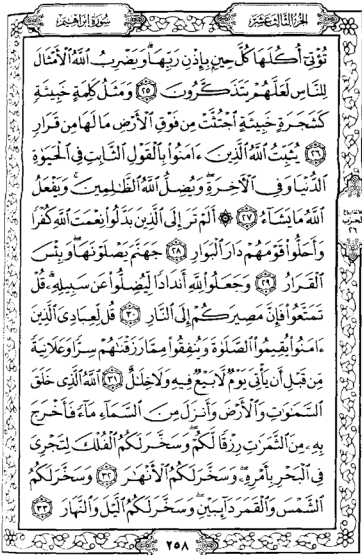 الجزء الثالث عشر
سورة إبراهيم
تُؤْتِىٓ أُكُلَهَا كُلَّ حِينٍۭ بِإِذْنِ رَبِّهَاۗ وَيَضْرِبُ ٱللَّهُ ٱلْأَمْثَالَ
لِلنَّاسِ لَعَلَّهُمْ يَتَذَكَّرُونَ ٢٥ وَمَثَلُ كَلِمَةٍ خَبِيثَةٍ
كَشَجَرَةٍ خَبِيثَةٍ ٱجْتُثَّتْ مِن فَوْقِ ٱلْأَرْضِ مَا لَهَا مِن قَرَارٍ
٢٦ يُثَبِّتُ ٱللَّهُ ٱلَّذِينَ ءَامَنُوا۟ بِٱلْقَوْلِ ٱلثَّابِتِ فِى ٱلْحَيَوٰةِ
ٱلدُّنْيَا وَفِى ٱلْءَاخِرَةِۖ وَيُضِلُّ ٱللَّهُ ٱلظَّـٰلِمِينَۚ وَيَفْعَلُ
ٱللَّهُ مَا يَشَآءُ ٢٧ ۞ أَلَمْ تَرَ إِلَى ٱلَّذِينَ بَدَّلُوا۟ نِعْمَتَ ٱللَّهِ كُفْرًا
وَأَحَلُّوا۟ قَوْمَهُمْ دَارَ ٱلْبَوَارِ ٢٨ جَهَنَّمَ يَصْلَوْنَهَاۖ وَبِئْسَ
ٱلْقَرَارُ ٢٩ وَجَعَلُوا۟ لِلَّهِ أَندَادًا لِّيُضِلُّوا۟ عَن سَبِيلِهِۦۗ قُلْ
تَمَتَّعُوا۟ فَإِنَّ مَصِيرَكُمْ إِلَى ٱلنَّارِ ٣٠ قُل لِّعِبَادِىَ ٱلَّذِينَ
ءَامَنُوا۟ يُقِيمُوا۟ ٱلصَّلَوٰةَ وَيُنفِقُوا۟ مِمَّا رَزَقْنَـٰهُمْ سِرًّا وَعَلَانِيَةً
مِّن قَبْلِ أَن يَأْتِىَ يَوْمٌ لَّا بَيْعٌ فِيهِ وَلَا خِلَـٰلٌ ٣١ ٱللَّهُ ٱلَّذِى خَلَقَ
ٱلسَّمَـٰوَٰتِ وَٱلْأَرْضَ وَأَنزَلَ مِنَ ٱلسَّمَآءِ مَآءً فَأَخْرَجَ
بِهِۦ مِنَ ٱلثَّمَرَٰتِ رِزْقًا لَّكُمْۖ وَسَخَّرَ لَكُمُ ٱلْفُلْكَ لِتَجْرِىَ
فِى ٱلْبَحْرِ بِأَمْرِهِۦۖ وَسَخَّرَ لَكُمُ ٱلْأَنْهَـٰرَ ٣٢ وَسَخَّرَ لَكُمُ
ٱلشَّمْسَ وَٱلْقَمَرَ دَآئِبَيْنِۖ وَسَخَّرَ لَكُمُ ٱلَّيْلَ وَٱلنَّهَارَ ٣٣
٢٥٨